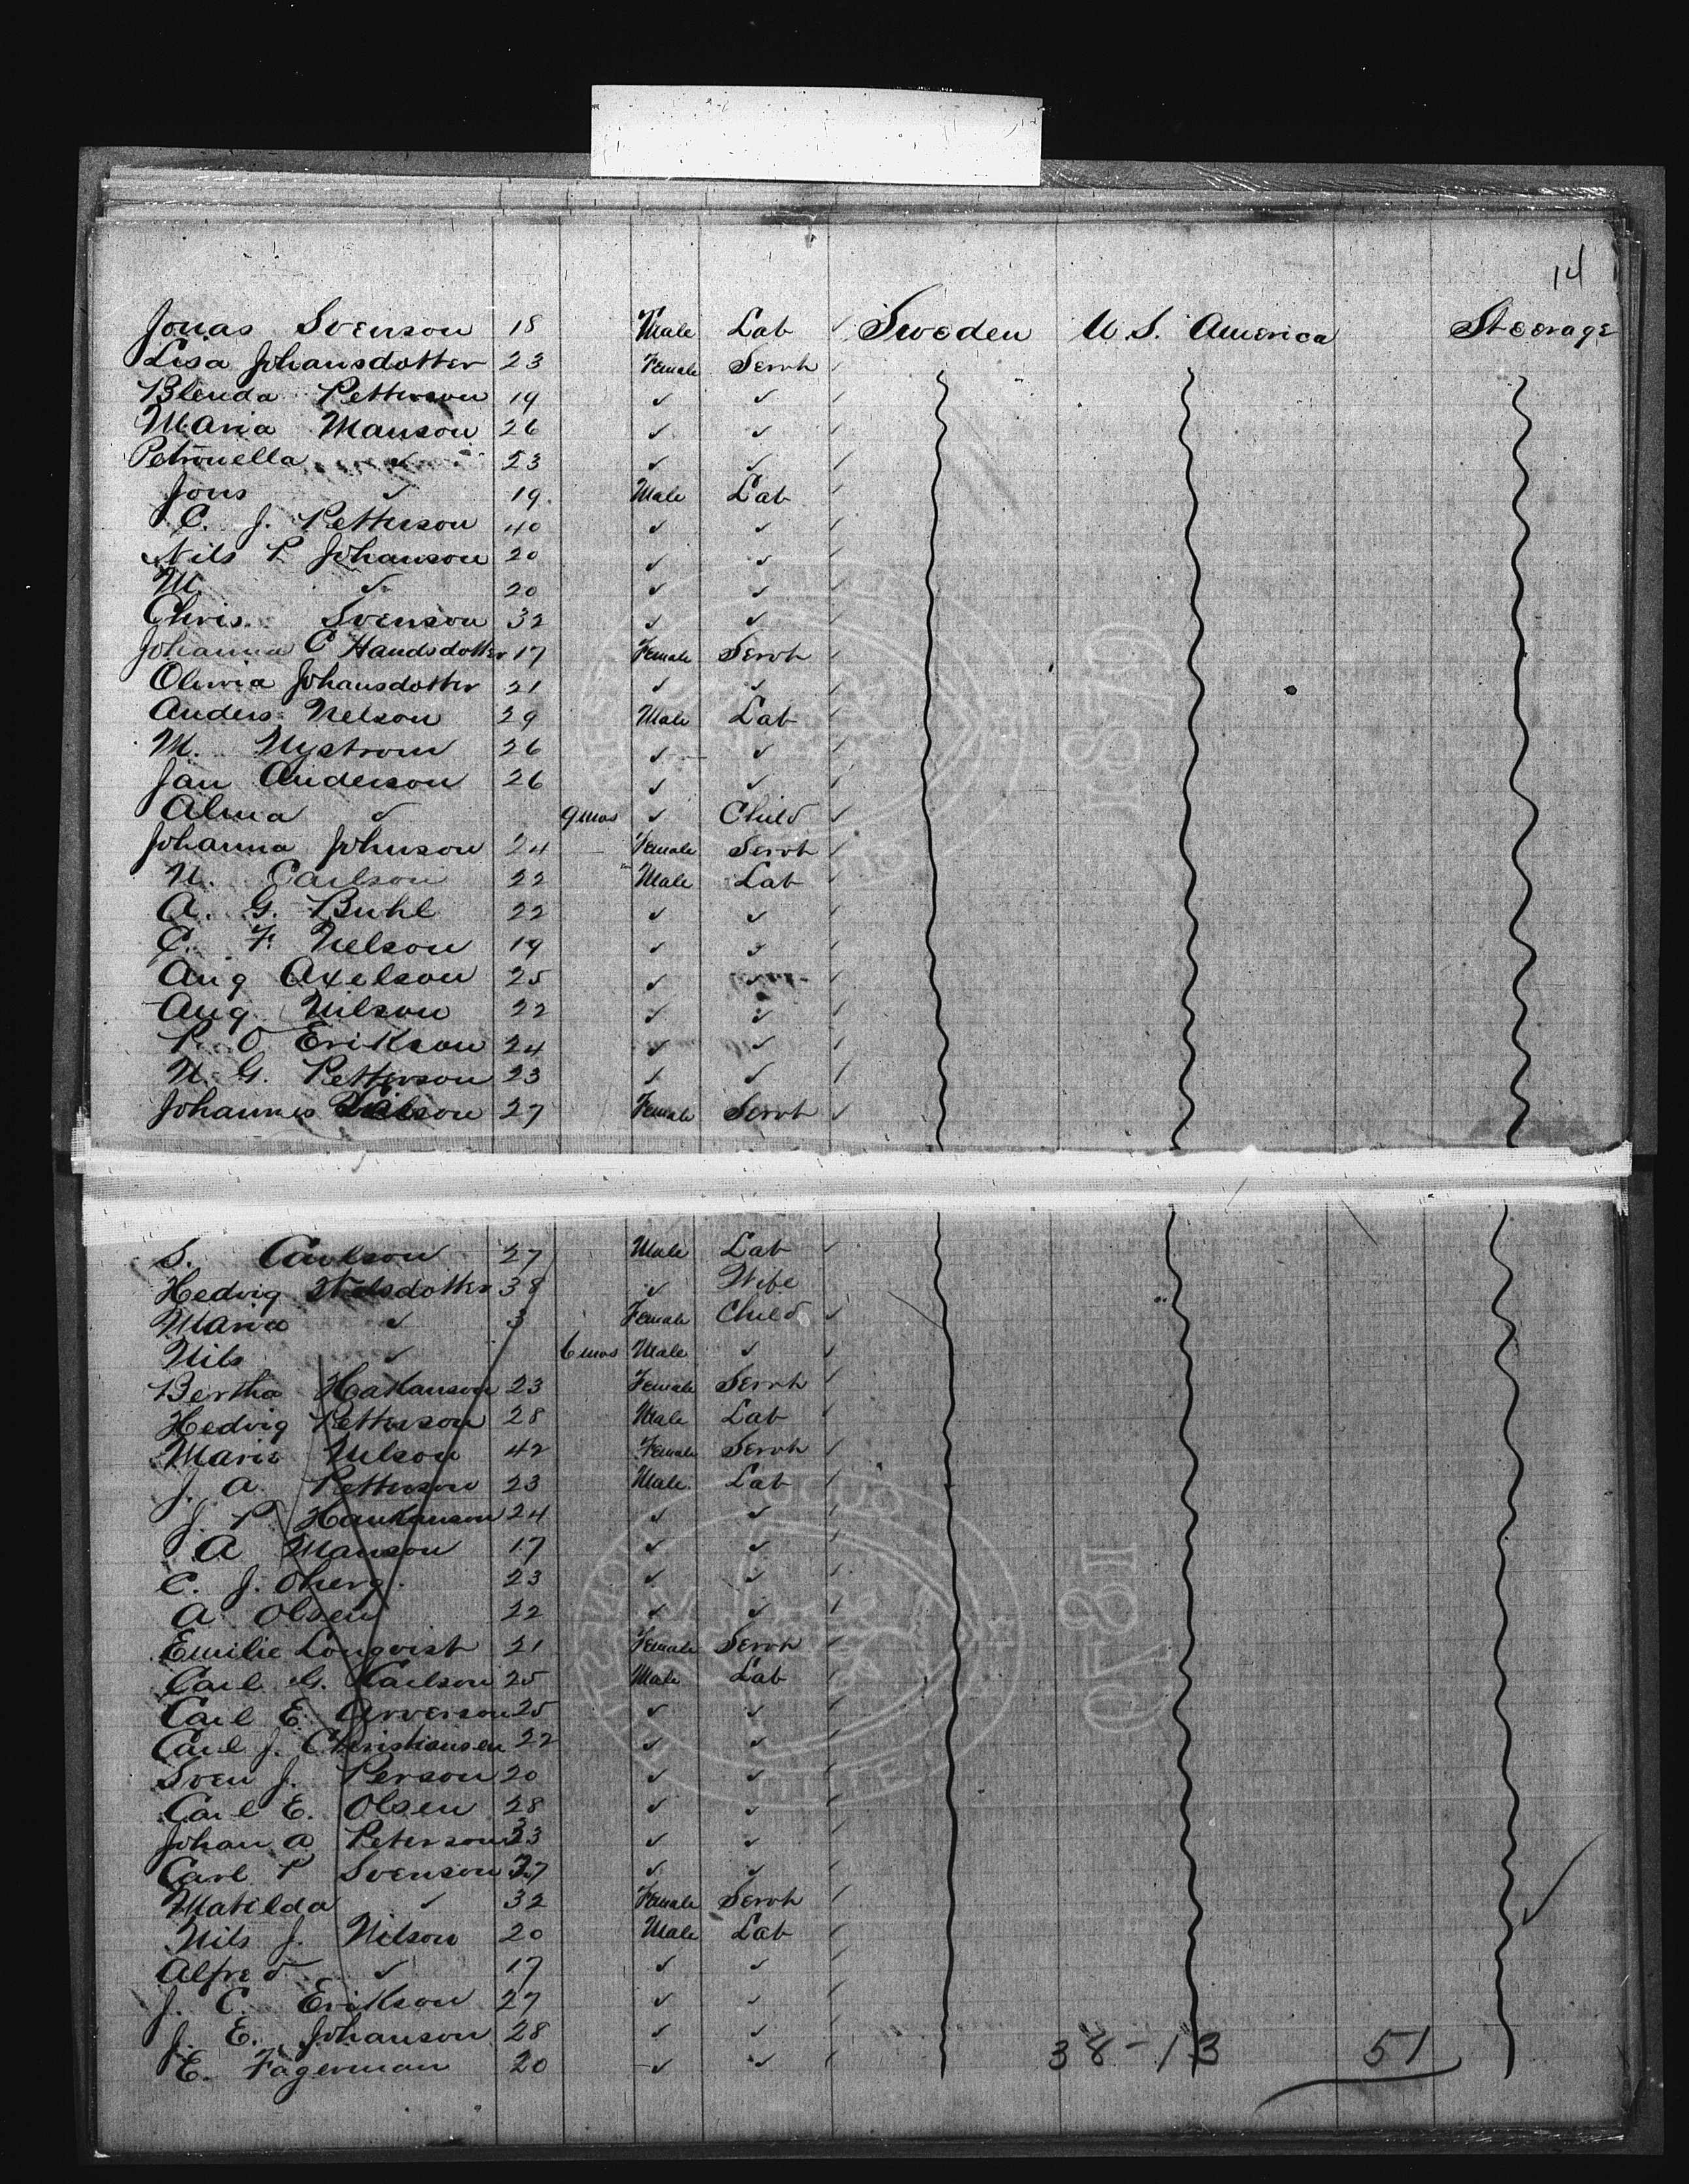 14
Jonas Svenson 18 Male Lab ✓ Sweden U.S. America Steerage
Lisa Johansdotter 23 Female Servt
Blenda Petterson 19 ✓ ✓
Maria Manson 26 ✓ ✓
Petronella ✓ 23 ✓ ✓
Jons ✓ 19 Male Lab
C. J. Petterson 40 ✓ ✓
Nils P Johanson 20 ✓ ✓
M. ✓ 20 ✓ ✓
Chris. Svenson 32 ✓ ✓
Johanna C Handsdotter 17 Female Servt
Olivia Johansdotter 21 ✓ ✓
Anders Nelson 29 Male Lab
M. Nystrom 26 ✓ ✓
Jan Anderson 26 ✓ ✓
Alma ✓ 9 mos ✓ Child ✓
Johanna Johnson 24 Female Servt
N. Carlson 22 Male Lab
A. G. Buhl 22 ✓ ✓
C. F. Nelson 19 ✓ ✓
Aug Axelson 25 ✓ ✓
Aug Nilson 22 ✓ ✓
P. O Erikson 24 ✓ ✓
N. G. Petterson 23 ✓ ✓
Johannes 27 Female Servt ✓
S. Carlson 27 Male Lab ✓
Hedvig Nilsdotter 38 ✓ Wife
Maria ✓ 3 Female Child ✓
Nils ✓ 6 mos Male ✓ ✓
Bertha Hakanson 23 Female Servt
Hedvig Petterson 28 Male Lab
Maria Nelson 42 Female Servt
J. A. Petterson 23 Male Lab
J. P. Hankanson 24 ✓ ✓
A Manson 17 ✓ ✓
C. J. Oberg. 23 ✓ ✓
A Olsen 22 ✓ ✓
Emilie Lonqvist 21 Female Servt
Carl G. Carlson 25 Male Lab
Carl E. Arverson 25 ✓ ✓
Carl J. Christiansen 22 ✓ ✓
Sven J. Person 20 ✓ ✓
Carl E. Olsen 28 ✓ ✓
Johan A Peterson 33 ✓ ✓
Carl P Svenson 37 ✓ ✓
Matilda ✓ 32 Female Servt
Nils J. Nilson 20 Male Lab
Alfred ✓ 17 ✓ ✓
J. C. Erikson 27 ✓ ✓
J. E. Johanson 28 ✓ ✓
E. Fagerman 20 ✓ ✓
38-13 51
1870